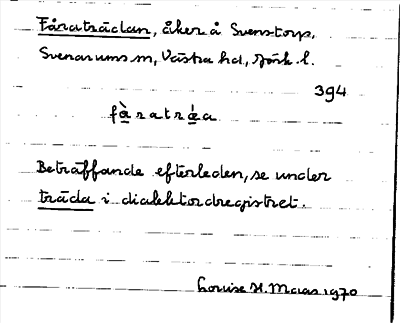 Fåraträdan, åker å Svenstorp,
Svenarums sn, Västra hd, Jönk. l.
394
fàratráa
Beträffande efterleden, se under
träda i dialektordregistret.
Louise H. Maas 1970